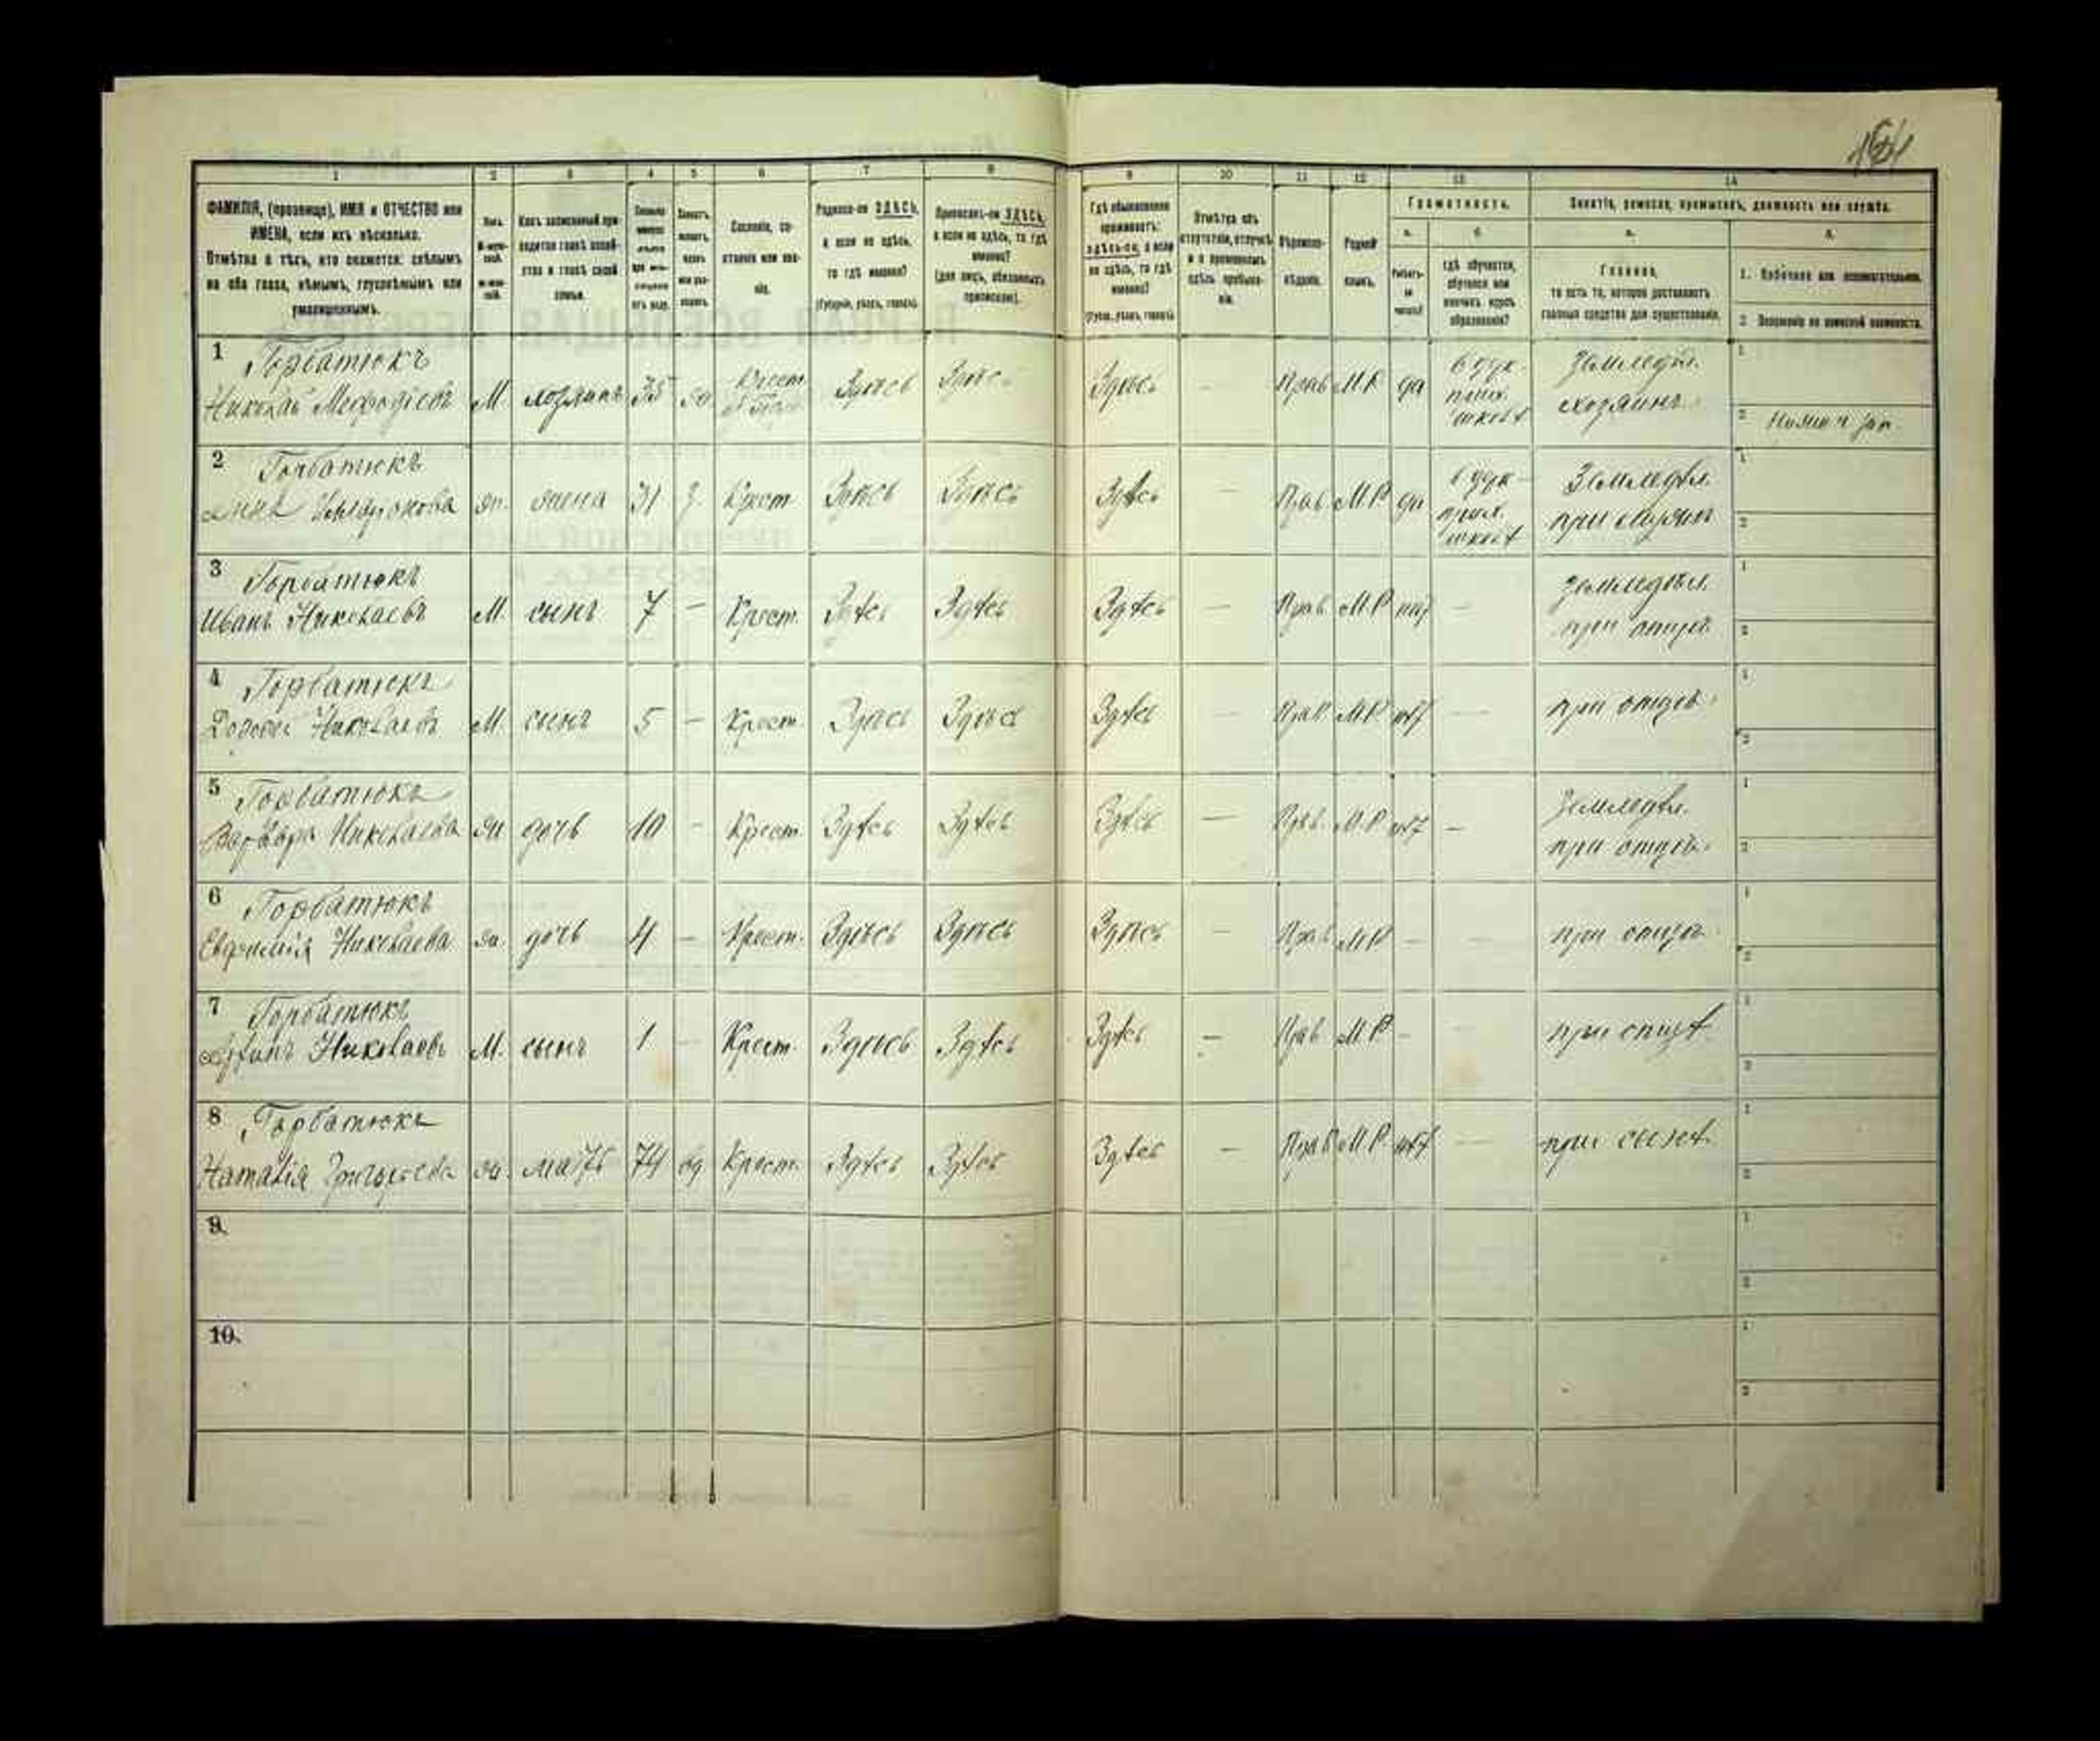 164
1 2 3 4 5 6 7 8 9 10 11 12 13 14
ФАМИЛІЯ, (прозвище), ИМЯ и ОТЧЕСТВО или
ИМЕНА, если ихъ нѣсколько.
Отмѣтка о тѣхъ, кто окажется: слѣпымъ
на оба глаза, нѣмымъ, глухонѣмымъ или
умалишеннымъ.
Полъ.
Какъ записанный при-
ходится главѣ хозяй-
ства и главѣ своей
семьи.
Сословіе, со-
стояніе или зва-
ніе.
Родился-ли ЗДѢСЬ,
а если не здѣсь,
то гдѣ именно?
(Губернія, уѣздъ, городъ).
Приписанъ-ли ЗДѢСЬ,
а если не здѣсь, то гдѣ
именно?
(для лицъ, обязанныхъ
припискою).
Гдѣ обыкновенно
проживаетъ:
здѣсь-ли, а если
не здѣсь, то гдѣ
именно?
(Губ., уѣздъ, городъ).
Отмѣтка объ
отсутствіи, отлучкѣ
и о временномъ
здѣсь пребыва-
ніи.
Вѣроиспо-
вѣданіе.
Родной
языкъ.
Грамотность.
а.
Умѣетъ-
ли
читать?
б.
Гдѣ обучается,
обучался или
кончилъ курсъ
образованія?
Занятіе, ремесло, промыселъ, должность или служба.
а.
Главное,
то есть то, которое доставляетъ
главныя средства для существованія.
б.
1. Побочное или вспомогательное.
2. Положеніе по воинской повинности.
1 Горбатюкъ
Николай Мефодіевъ М. хозяинъ 35 Крест. Здѣсь Здѣсь Здѣсь — Прав М.Р да
школѣ Земледѣл.
хозяинъ
1
2
2 Горбатюкъ
Анна жена 31 Крест. Здѣсь Здѣсь Здѣсь — Прав. М.Р да
школѣ Земледѣл.
при
1
2
3 Горбатюкъ
Иванъ Николаевъ М. сынъ 7 — Крест. Здѣсь Здѣсь Здѣсь — Прав. М.Р нѣт — Земледѣл.
при отцѣ
1
2
4 Горбатюкъ
Николаевъ М. сынъ 5 — Крест. Здѣсь Здѣсь Здѣсь — Прав М.Р нѣт — при отцѣ
1
2
5 Горбатюкъ
Варвара Николаева ж. дочь 10 — Крест. Здѣсь Здѣсь Здѣсь — Прав. М.Р нѣт — Земледѣл.
при отцѣ
1
2
6 Горбатюкъ
Евфимія Николаева ж. дочь 4 — Крест. Здѣсь Здѣсь Здѣсь — Прав М.Р — — при отцѣ
1
2
7 Горбатюкъ
Николаевъ М. сынъ 1 — Крест. Здѣсь Здѣсь Здѣсь — Прав М.Р — — при отцѣ
1
2
8 Горбатюкъ
Наталія Григорьева ж. мать 74 вд Крест. Здѣсь Здѣсь Здѣсь — Прав М.Р нѣт — при сынѣ
1
2
9.
1
2
10.
1
2